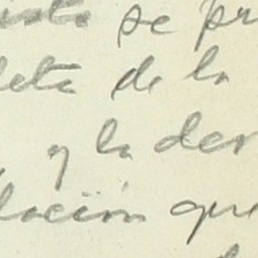 se pr
leta de la
y la der
lación que